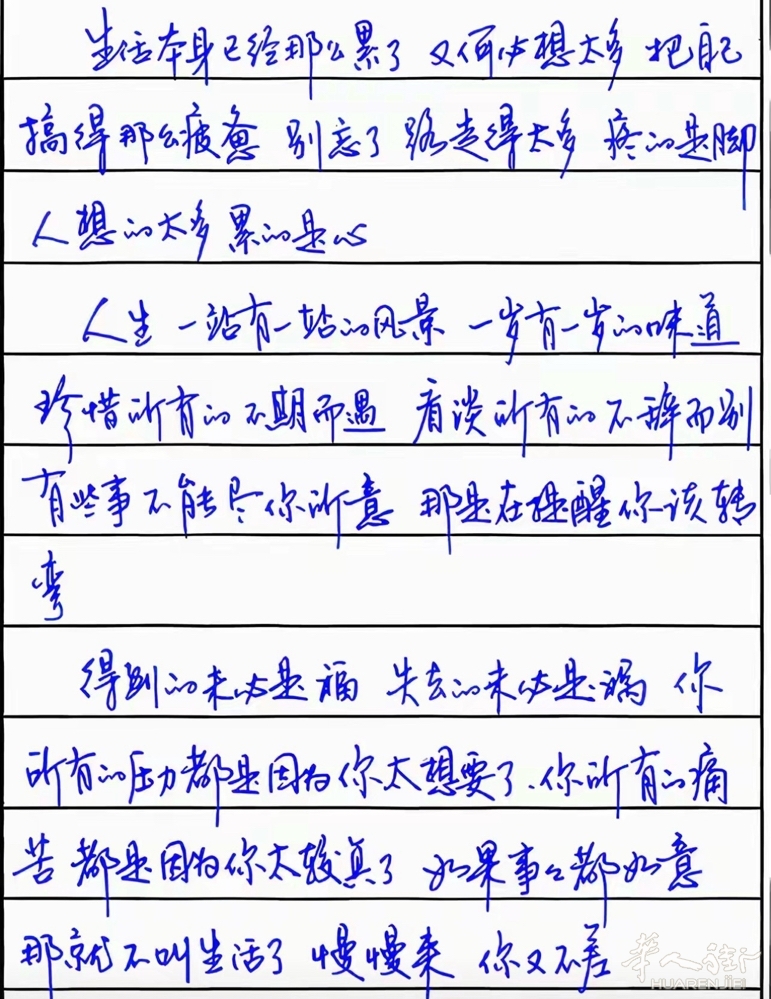 生活本身已经那么累了 又何必想太多 把自己
搞得那么疲惫 别忘了 路走得太多 疼的是脚
人想的太多 累的是心
人生 一站有一站的风景 一岁有一岁的味道
珍惜所有的不期而遇 看淡所有的不辞而别
有些事不能尽你所意 那是在提醒你该转
弯
得到的未必是福 失去的未必是祸 你
所有的压力都是因为你太想要了、你所有的痛
苦 都是因为你太较真了 如果事々都如意
那就不叫生活了 慢慢来 你又不差
华人街
HUARENJIE